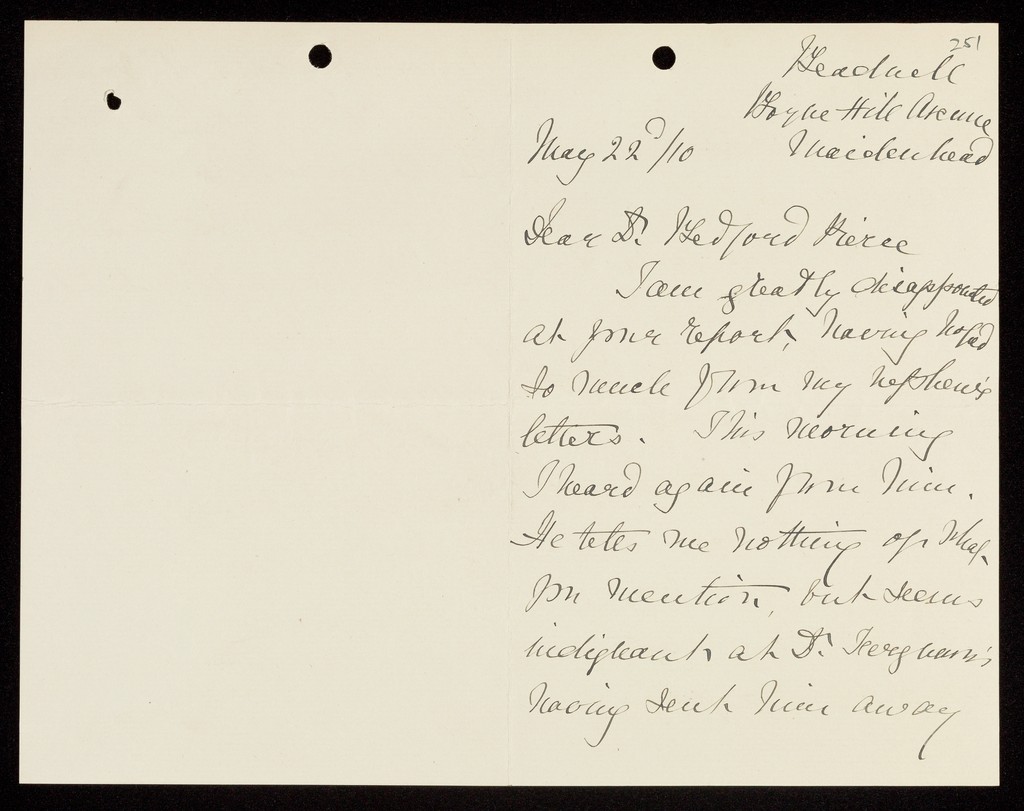 251
Beadnell
Boyne Hill Avenue
Maidenhead
May 22d/10
Dear Dr. Bedford Pierce
I am greatly disappointed
at your report, having hoped
so much from my nephew's
letters. This morning
I heard again from him.
He tells me nothing of what
you mention, but seems
indignant at Dr.
having sent him away